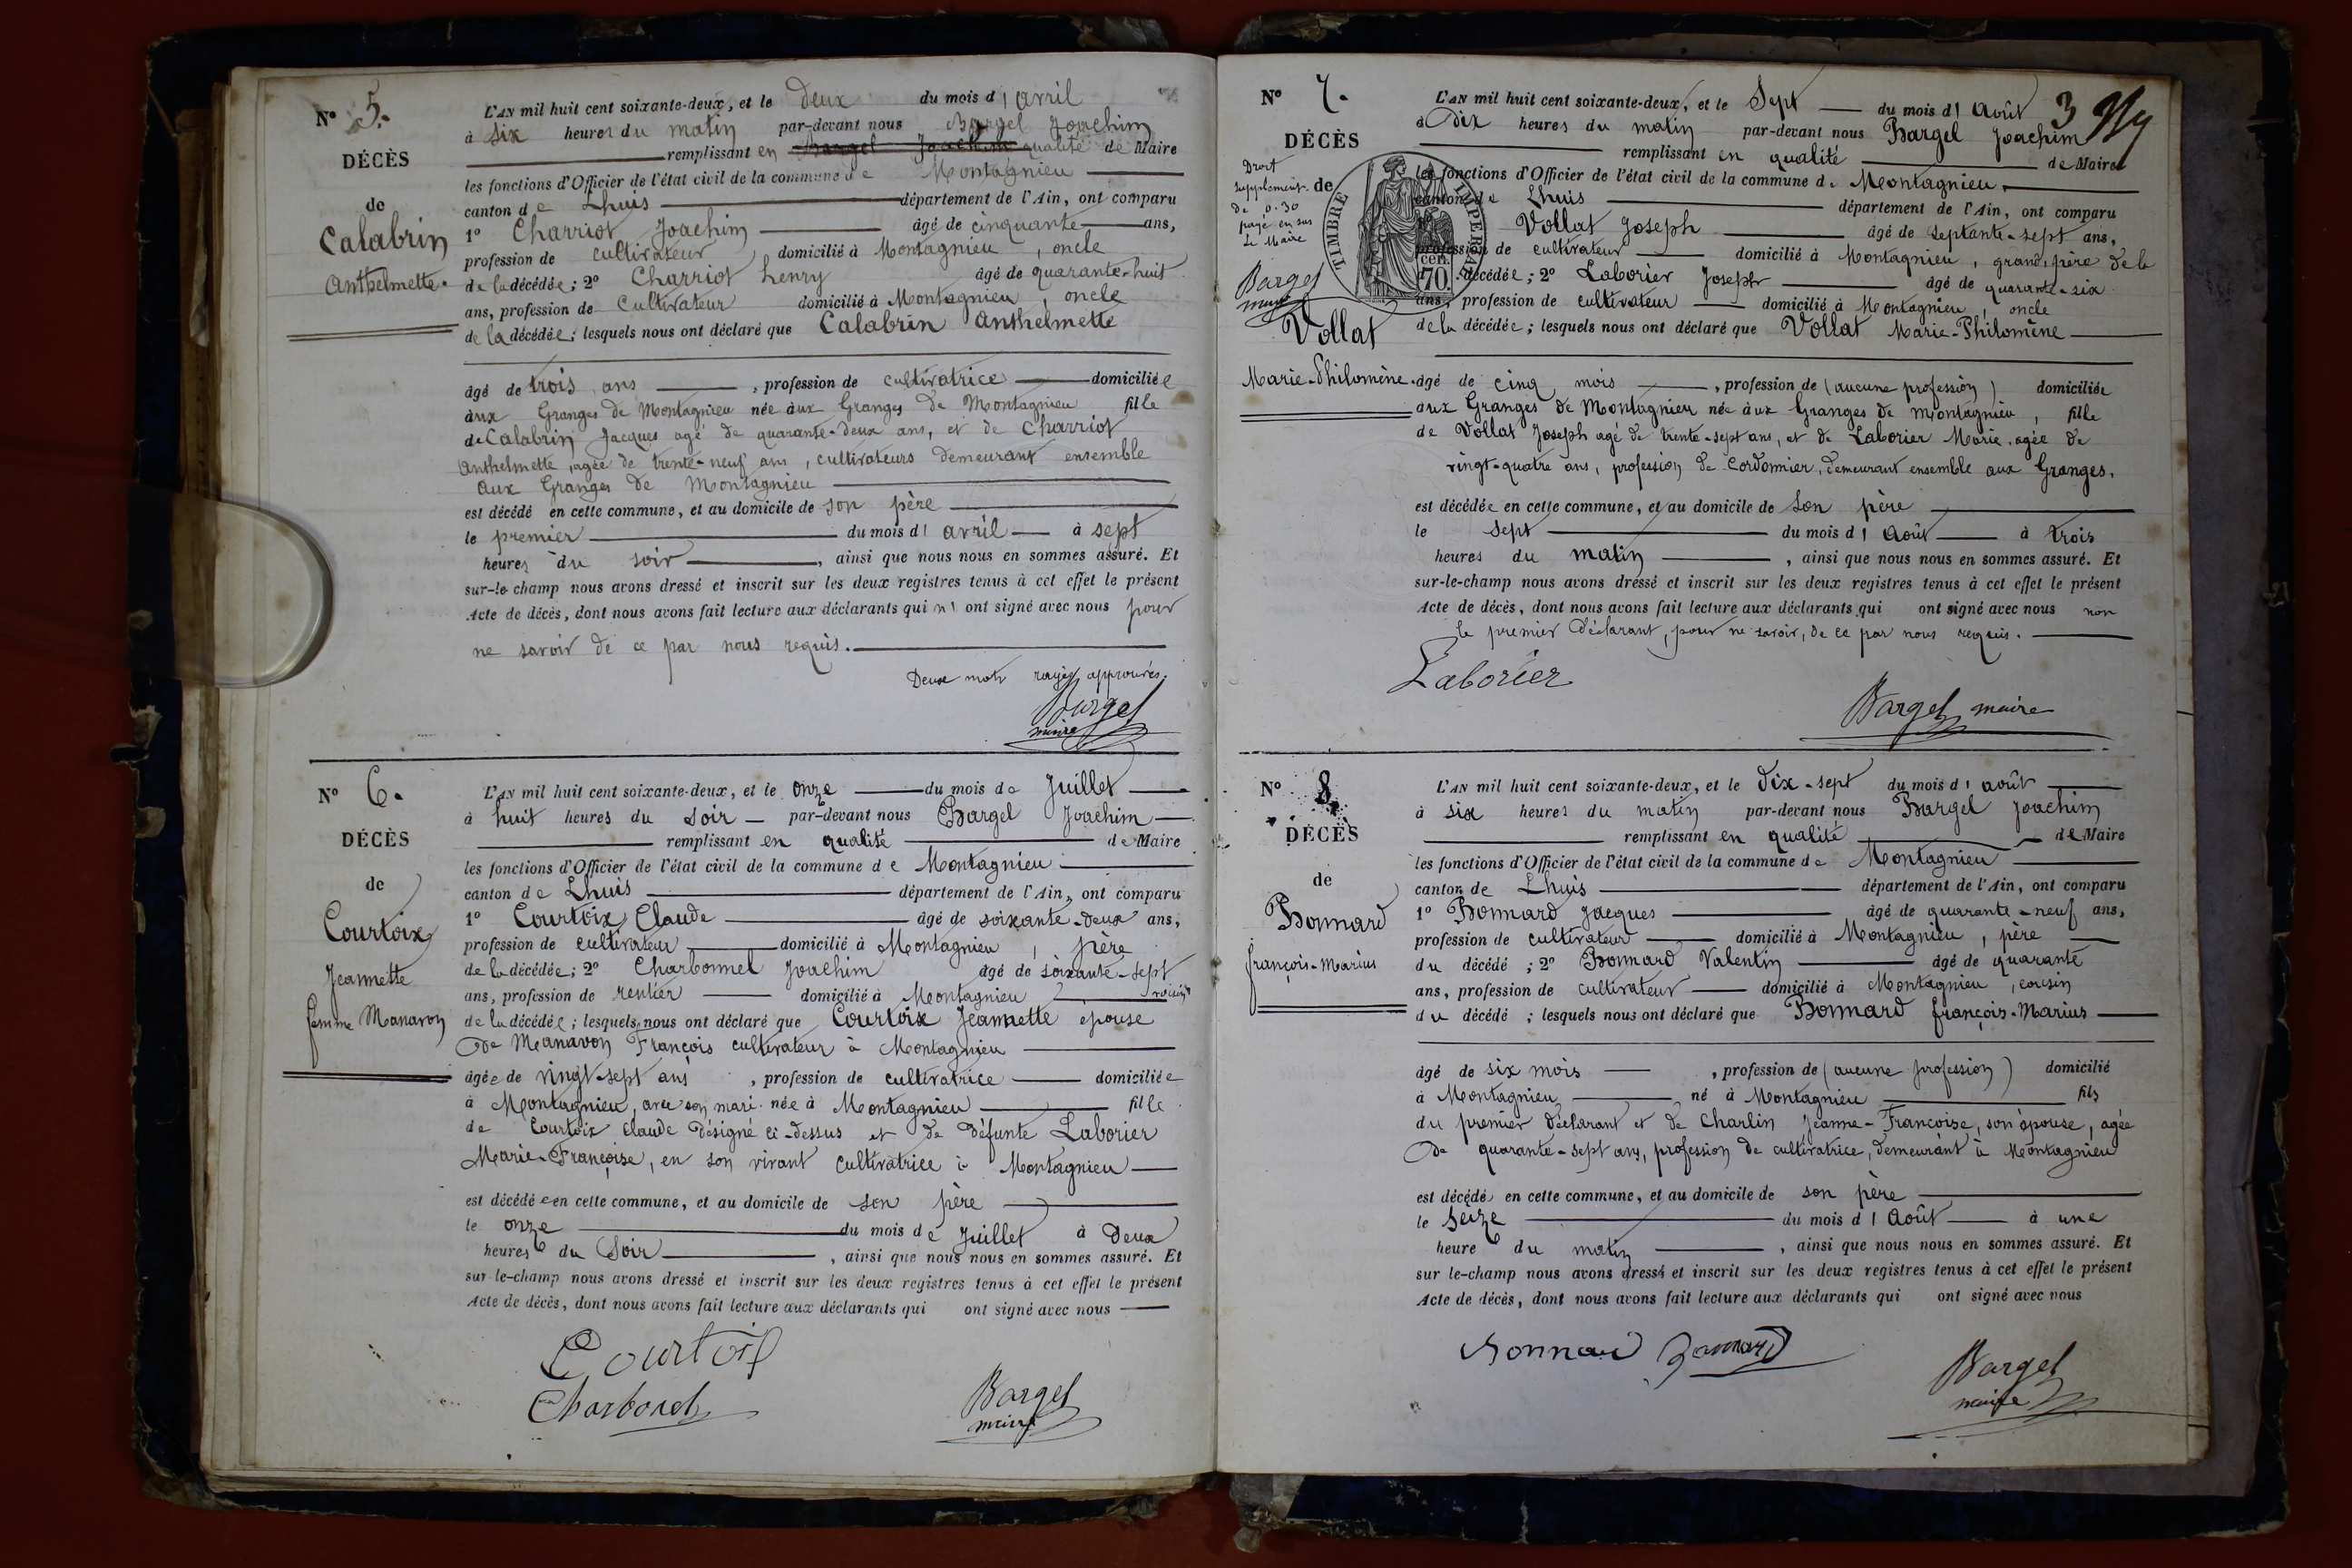 N° 5.
DÉCÈS
de
Calabrin
Anthelmette.
L'AN mil huit cent soixante-deux, et le deux du mois d'avril
à six heures du matin par-devant nous Bargel Joachim
remplissant en Bargel Joachim qualité de Maire
les fonctions d'Officier de l'état civil de la commune de Montagnieu
canton de Lhuis département de l'Ain, ont comparu
1° Charriot Joachim âgé de cinquante ans,
profession de cultivateur domicilié à Montagnieu, oncle
de la décédée; 2° Charriot henry âgé de quarante-huit
ans, profession de Cultivateur domicilié à Montagnieu, oncle
de la décédée; lesquels nous ont déclaré que Calabrin Anthelmette
âgé de trois ans, profession de cultivatrice domiciliée
aux Granges de Montagnieu née aux Granges de Montagnieu fille
de Calabrin Jacques agé de quarante-deux ans, et de Charriot
Anthelmette, agée de trente-neuf ans, cultivateurs demeurant ensemble
aux Granges de Montagnieu
est décédé en cette commune, et au domicile de son père
le premier du mois d'avril à sept
heures du soir, ainsi que nous nous en sommes assuré. Et
sur-le champ nous avons dressé et inscrit sur les deux registres tenus à cet effet le présent
Acte de décès, dont nous avons fait lecture aux déclarants qui n'ont signé avec nous pour
ne savoir de ce par nous requis.
Deux mots rayés approuvés.
Bargel
maire
N° 6.
DÉCÈS
de
Courtoix
Jeannette
femme Manavon
L'AN mil huit cent soixante-deux, et le onze du mois de Juillet
à huit heures du soir par-devant nous Bargel Joachim
remplissant en qualité de Maire
les fonctions d'Officier de l'état civil de la commune de Montagnieu
canton de Lhuis département de l'Ain, ont comparu
1° Courtoix Claude âgé de soixante-deux ans,
profession de cultivateur domicilié à Montagnieu, père
de la décédée; 2° Charbonnel Joachim âgé de soixante-sept
ans, profession de rentier domicilié à Montagnieu voisin
de la décédée; lesquels nous ont déclaré que Courtoix Jeannette épouse
de Manavon François cultivateur à Montagnieu
âgée de vingt-sept ans, profession de cultivatrice domiciliée
à Montagnieu, avec son mari née à Montagnieu fille
de Courtoix Claude désigné ci-dessus et de défunte Laborier
Marie-Françoise, en son vivant cultivatrice à Montagnieu
est décédée en cette commune, et au domicile de son père
le onze du mois de Juillet à deux
heures du soir, ainsi que nous nous en sommes assuré. Et
sur-le-champ nous avons dressé et inscrit sur les deux registres tenus à cet effet le présent
Acte de décès, dont nous avons fait lecture aux déclarants qui ont signé avec nous
Courtoix
Charbonel
Bargel
maire
3
N° 7.
DÉCÈS
Droit
supplément.
de 0.30
payé en sus
Le Maire
Bargel
maire
de
Vollat
Marie-Philomène.
TIMBRE IMPERIAL
70 cen.
L'AN mil huit cent soixante-deux, et le Sept du mois d'Août
à Dix heures du matin par-devant nous Bargel Joachim
remplissant en qualité de Maire
les fonctions d'Officier de l'état civil de la commune de Montagnieu
canton de Lhuis département de l'Ain, ont comparu
Vollat Joseph âgé de septante-sept ans,
profession de cultivateur domicilié à Montagnieu, grand père de la
décédée; 2° Laborier Joseph âgé de quarante-six
ans, profession de cultivateur domicilié à Montagnieu, oncle
de la décédée; lesquels nous ont déclaré que Vollat Marie-Philomène
âgé de cinq mois, profession de (aucune profession) domiciliée
aux Granges de Montagnieu née aux Granges de Montagnieu, fille
de Vollat Joseph agé de trente-sept ans, et de Laborier Marie, agée de
vingt-quatre ans, profession de Cordonnier, demeurant ensemble aux Granges.
est décédée en cette commune, et au domicile de son père
le sept du mois d'Août à trois
heures du matin, ainsi que nous nous en sommes assuré. Et
sur-le-champ nous avons dressé et inscrit sur les deux registres tenus à cet effet le présent
Acte de décès, dont nous avons fait lecture aux déclarants qui ont signé avec nous non
le premier déclarant, pour ne savoir, de ce par nous requis.
Laborier
Bargel maire
N° 8.
DÉCÈS
de
Bonnard
françois-Marius
L'AN mil huit cent soixante-deux, et le dix-sept du mois d'août
à six heures du matin par-devant nous Bargel Joachim
remplissant en qualité de Maire
les fonctions d'Officier de l'état civil de la commune de Montagnieu
canton de Lhuis département de l'Ain, ont comparu
1° Bonnard Jacques âgé de quarante-neuf ans,
profession de cultivateur domicilié à Montagnieu, père
du décédé; 2° Bonnard Valentin âgé de quarante
ans, profession de cultivateur domicilié à Montagnieu, cousin
du décédé; lesquels nous ont déclaré que Bonnard françois-Marius
âgé de six mois, profession de (aucune profession) domicilié
à Montagnieu né à Montagnieu fils
du premier déclarant et de Charlin Jeanne-Françoise, son épouse, agée
de quarante-sept ans, profession de cultivatrice, demeurant à Montagnieu
est décédé en cette commune, et au domicile de son père
le Seize du mois d'Août à une
heure du matin, ainsi que nous nous en sommes assuré. Et
sur le-champ nous avons dressé et inscrit sur les deux registres tenus à cet effet le présent
Acte de décès, dont nous avons fait lecture aux déclarants qui ont signé avec nous
Bonnard Bonnard
Bargel
maire